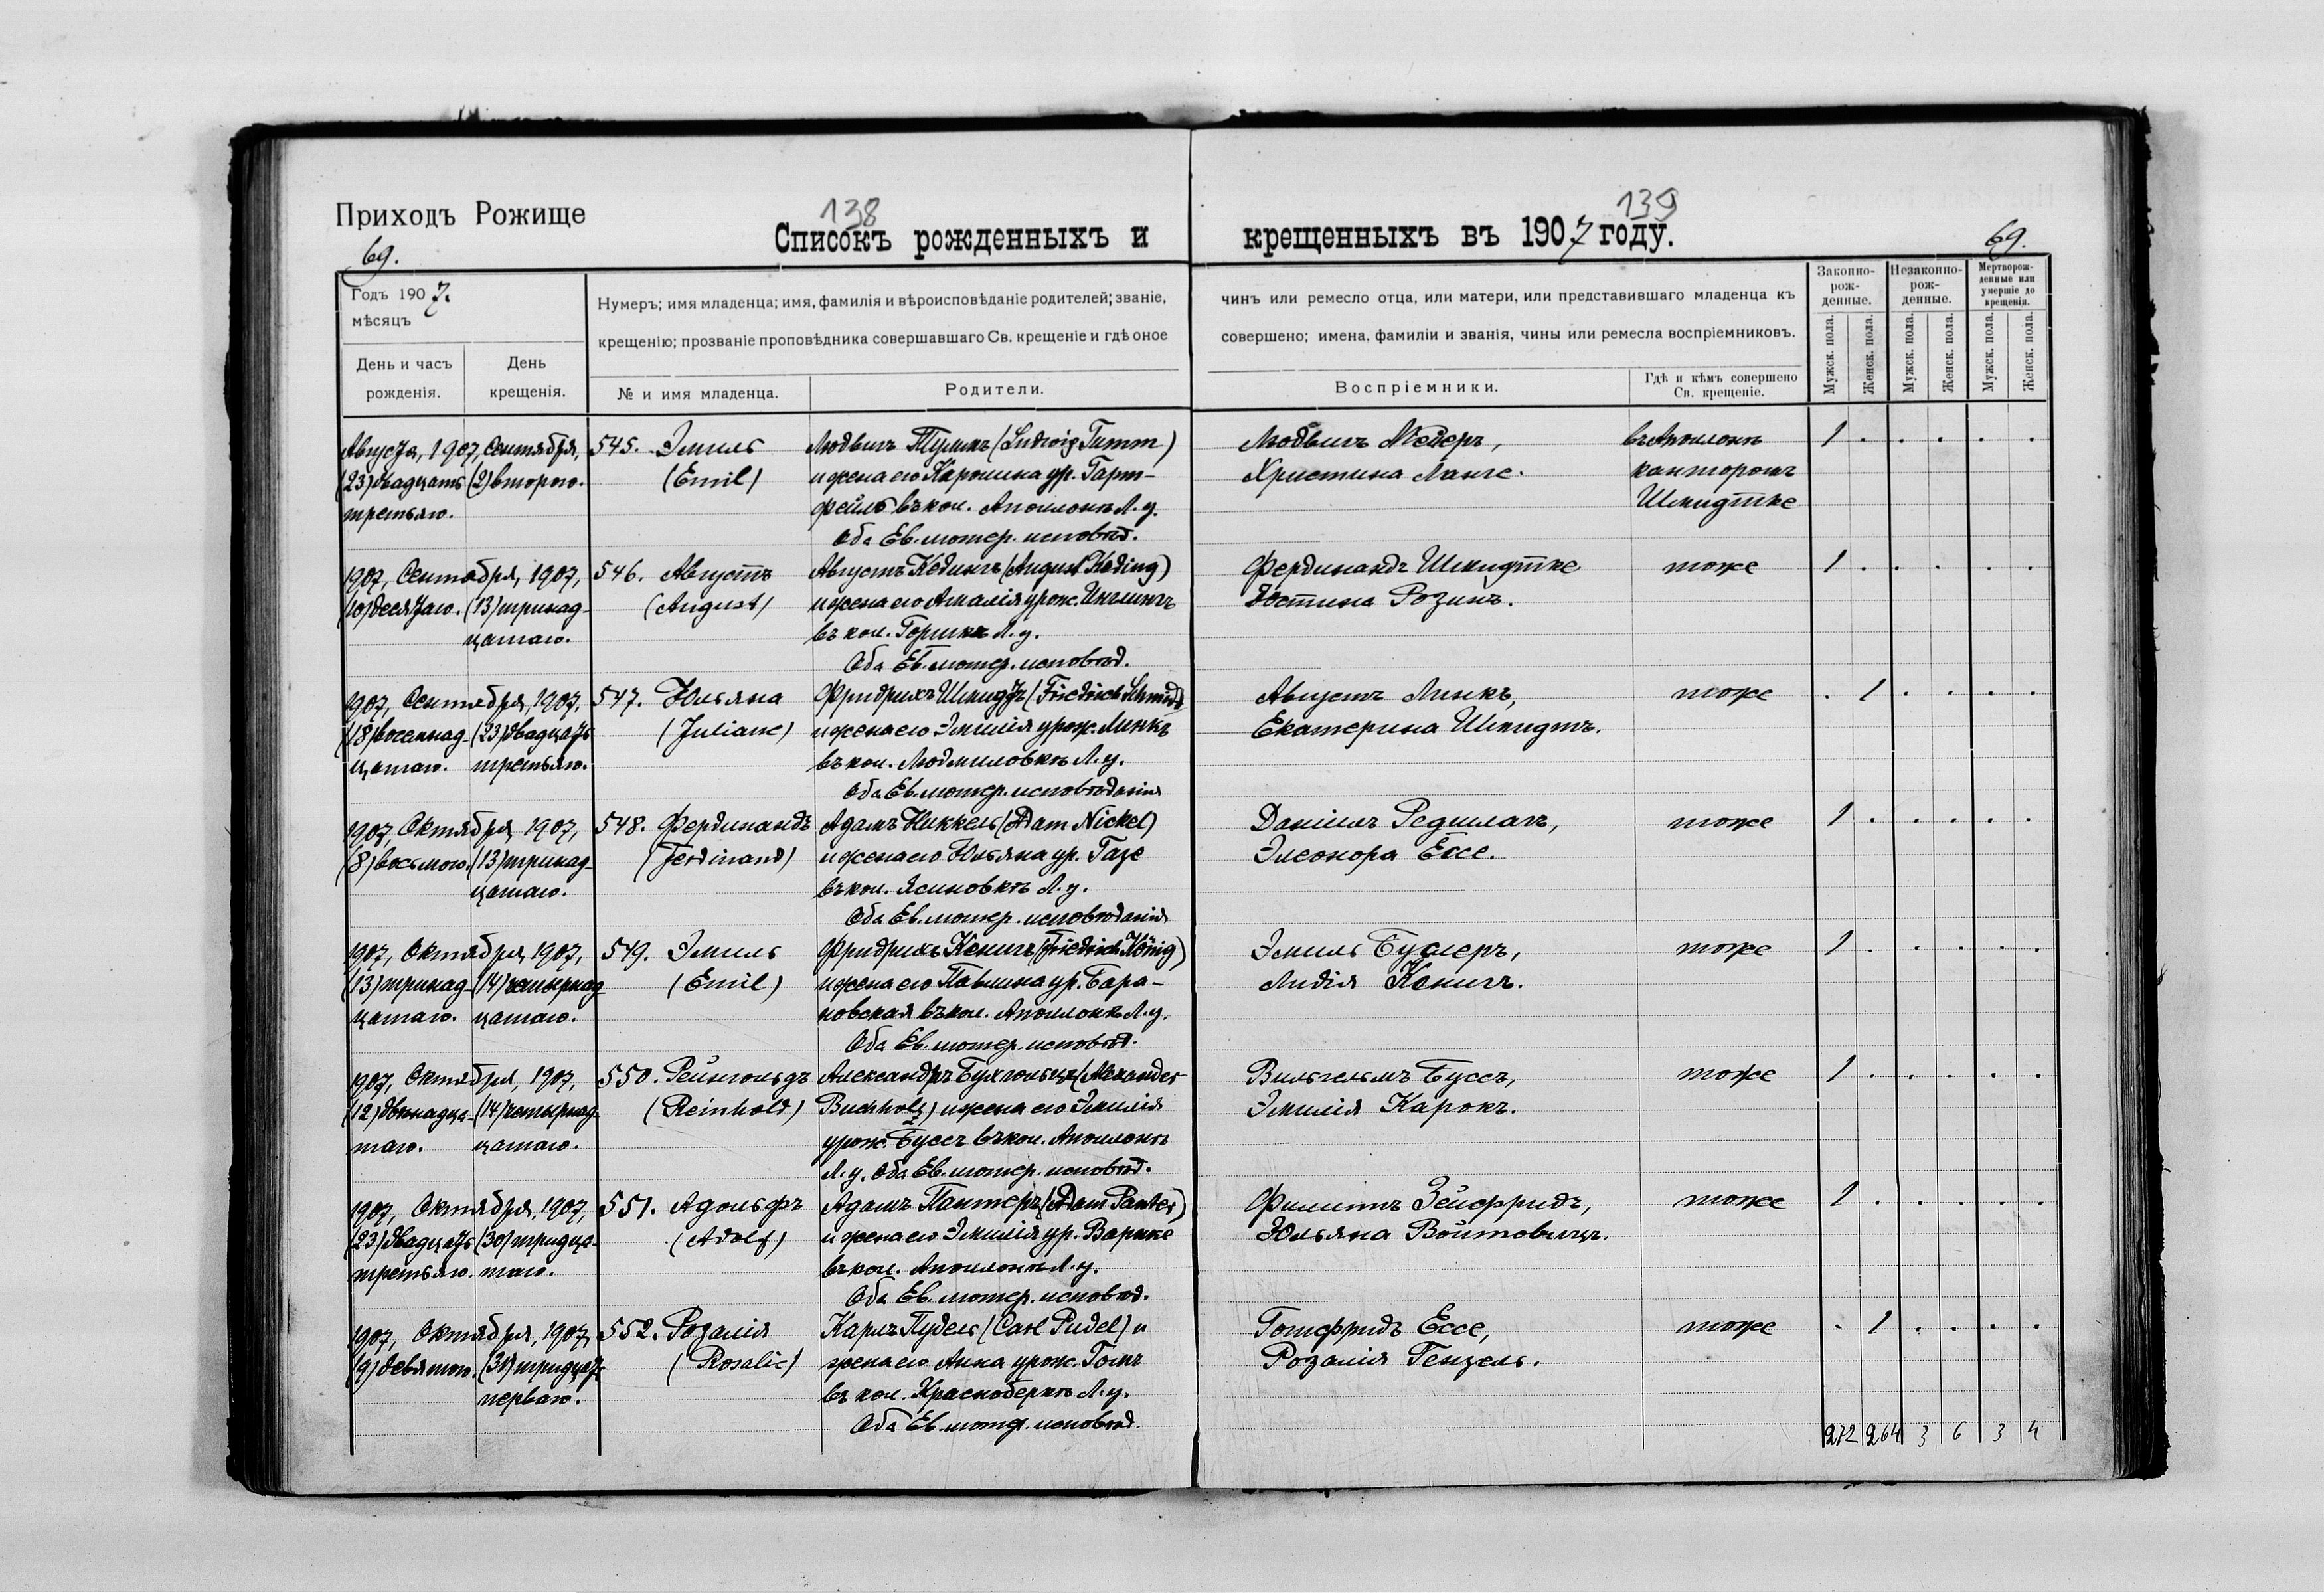 Приходъ Рожище
138
139
Списокъ рожденныхъ и крещенныхъ въ 1907 году.
69.
69.
Годъ 1907.
мѣсяцъ
День и часъ рожденія.
День крещенія.
Нумеръ; имя младенца; имя, фамилія и вѣроисповѣданіе родителей; званіе,
чинъ или ремесло отца, или матери, или представившаго младенца къ
крещенію; прозваніе проповѣдника совершавшаго Св. крещеніе и гдѣ оное
совершено; имена, фамиліи и званія, чины или ремесла воспріемниковъ.
№ и имя младенца.
Родители.
Воспріемники.
Гдѣ и кѣмъ совершено
Св. крещеніе.
Законно-
рож-
денные.
Незаконно-
рож-
денные.
Мертворож-
денные или
умершіе до
крещенія.
Мужск. пола.
Женск. пола.
Мужск. пола.
Женск. пола.
Мужск. пола.
Женск. пола.
Августа, 1907, Сентября, 545. Эмиль Людвигъ Тиммъ (Ludwig Timm) Людвигъ Медеръ, въ Аполонѣ 1 . . . . .
(23) двадцать (2) второго. (Emil) и жена его Каролина ур. Гарт- Христина Ланге. канторомъ
третьяго. фейль въ кол. Аполонѣ Л. у. Шмидтке
Оба Ев. лютер. исповѣд.
1907, Сентября, 1907, 546. Августъ Августъ Кедингъ (August Keding) Фердинандъ Шмидтке тоже 1 . . . . .
(10) десятаго. (13) тринад- (August) и жена его Амалія урож. Инглингъ Юстина Розинъ.
цатаго. въ кол. Горькѣ Л. у.
Оба Ев. лютер. исповѣд.
1907, Сентября, 1907, 547. Юльяна Фридрихъ Шмидтъ (Friedrich Schmidt) Августъ Линкъ, тоже . 1 . . . .
(18) восемнад- (23) двадцать (Juliane) и жена его Эмилія урож. Линкъ Екатерина Шмидтъ.
цатаго. третьяго. въ кол. Людмиловкѣ Л. у.
Оба Ев. лютер. исповѣданія
1907, Октября, 1907, 548. Фердинандъ Адамъ Никкель (Adam Nickel) Даніилъ Редшлагъ, тоже 1 . . . . .
(8) восьмого. (13) тринад- (Ferdinand) и жена его Юльяна ур. Газе Элеонора Ессе.
цатаго. въ кол. Ясиновкѣ Л. у.
Оба Ев. лютер. исповѣданія
1907, Октября, 1907, 549. Эмиль Фридрихъ Кенигъ (Friedrich König) Эмиль Буслеръ, тоже 1 . . . . .
(13) тринад- (14) четырнад- (Emil) и жена его Павлина ур. Бара- Лидія Кенигъ.
цатаго. цатаго. новская въ кол. Аполонѣ Л. у.
Оба Ев. лютер. исповѣд.
1907, Октября, 1907, 550. Рейнгольдъ Александръ Бухгольцъ (Alexander Вильгельмъ Буссъ, тоже 1 . . . . .
(12) двѣнадца- (14) четырнад- (Reinhold) Buchholz) и жена его Эмилія Эмилія Карокъ.
таго. цатаго. урож. Буссъ въ кол. Аполонѣ
Л. у. Оба Ев. лютер. исповѣд.
1907, Октября, 1907, 551. Адольфъ Адамъ Пантеръ (Adam Panter) Филиппъ Зейфридъ, тоже 1 . . . . .
(23) двадцать (30) тридца- (Adolf) и жена его Эмилія ур. Варнке Юльяна Войтовичъ.
третьяго. таго. въ кол. Аполонѣ Л. у.
Оба Ев. лютер. исповѣд.
1907, Октября, 1907, 552. Розалія Карлъ Пудель (Carl Pudel) и Готфридъ Ессе, тоже . 1 . . . .
(9) девятого. (31) тридцать (Rosalie) жена его Анна урож. Гомъ Розалія Гензель.
перваго. въ кол. Красноберкѣ Л. у.
Оба Ев. лютер. исповѣд.
272 264 3 6 3 4